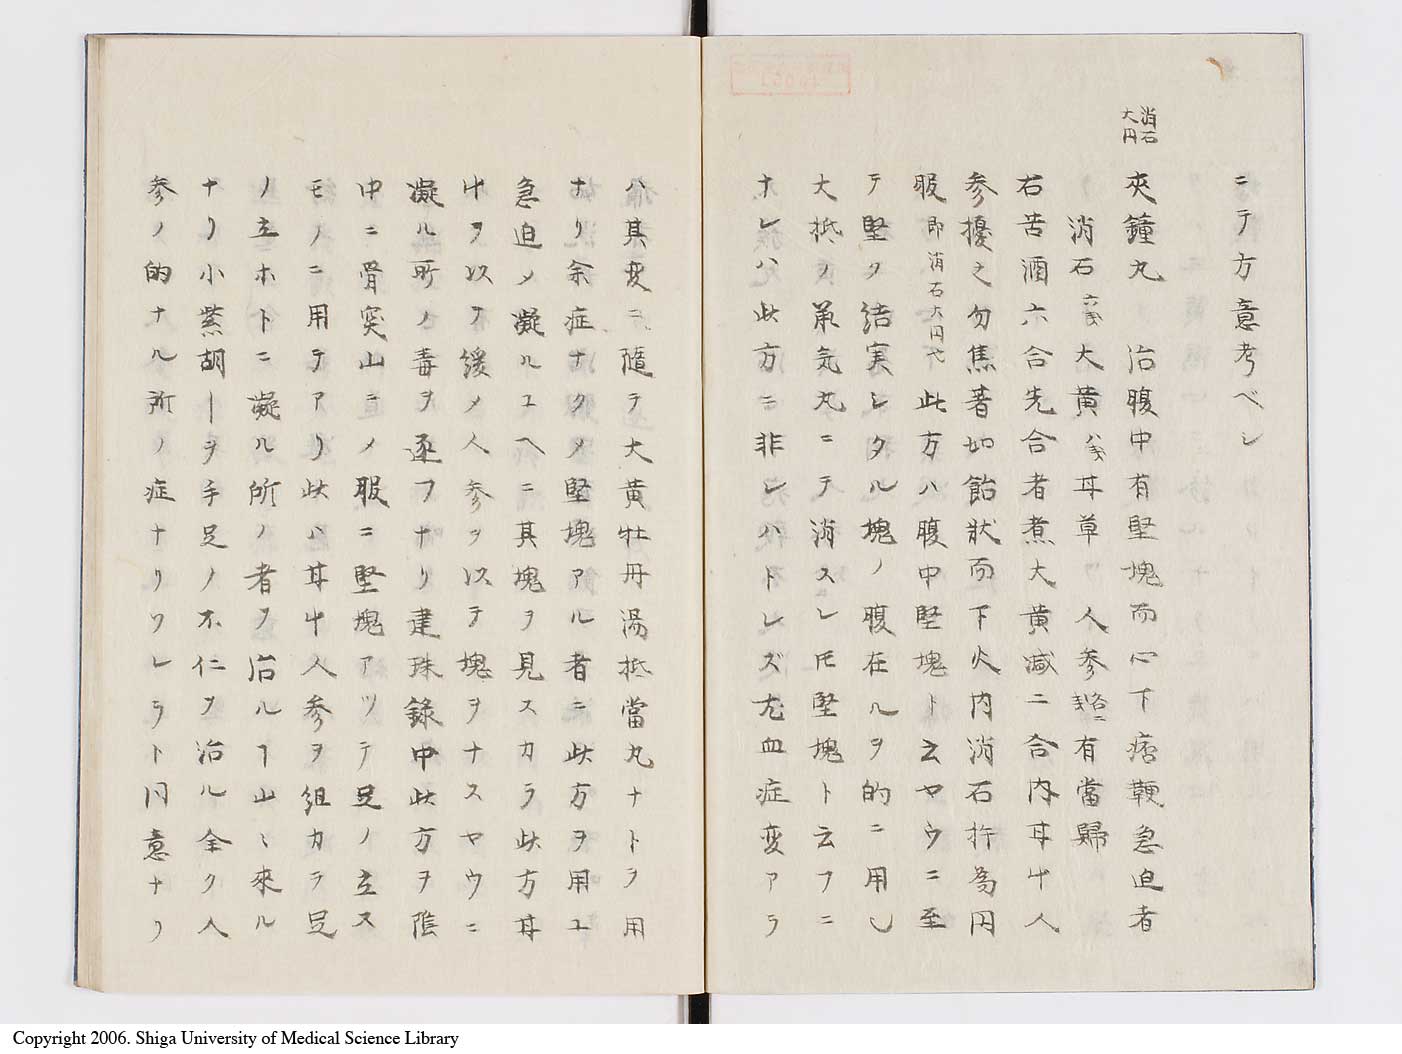 ニテ方意考ベシ
消石
大円
夾鐘丸 治腹中有堅塊而心下痞鞕急迫者
消石六戔大黄八戔耳草 人参各二戔有當歸
右苦酒六合先合者煮大黄减二合内耳艸人
参擾之勿焦著如飴状而下火内消石杵為円
服即消石大円也此方ハ腹中堅塊ト云ヤウニ至
テ堅ク結実シタル塊ノ腹在ルヲ的ニ用ん
大抵ノ承気丸ニテ消スレ𪜈堅塊ト云フニ
ナレハ此方ニ非レハトレズ尤血症変アラ
ハ其変ニ随テ大黄牡丹湯抵當丸ナトヲ用
ナリ余症ナクメ堅塊アル者ニ此方ヲ用ユ
急迫ノ凝ルユヘニ其塊ヲ見スカラ此方耳
艸ヲ以テ緩メ人参ヲ以テ塊ヲナスヤウニ
凝ル所ノ毒ヲ逐フナリ建珠録中此方ヲ隂
中ニ骨突出ニメ服ニ堅塊アツテ足ノ立ス
モノニ用テアリ此ハ耳艸人参ヲ組カラ足
ノ立ホトニ凝ル所ノ者ヲ治ルヿ出ヽ來ル
ナリ小柴胡ーヲ手足ノ不仁ヲ治ル全ク人
参ノ的ナル所ノ症ナリワレラト同意ナリ
Copyright 2006. Shiga University of Medical Science Library